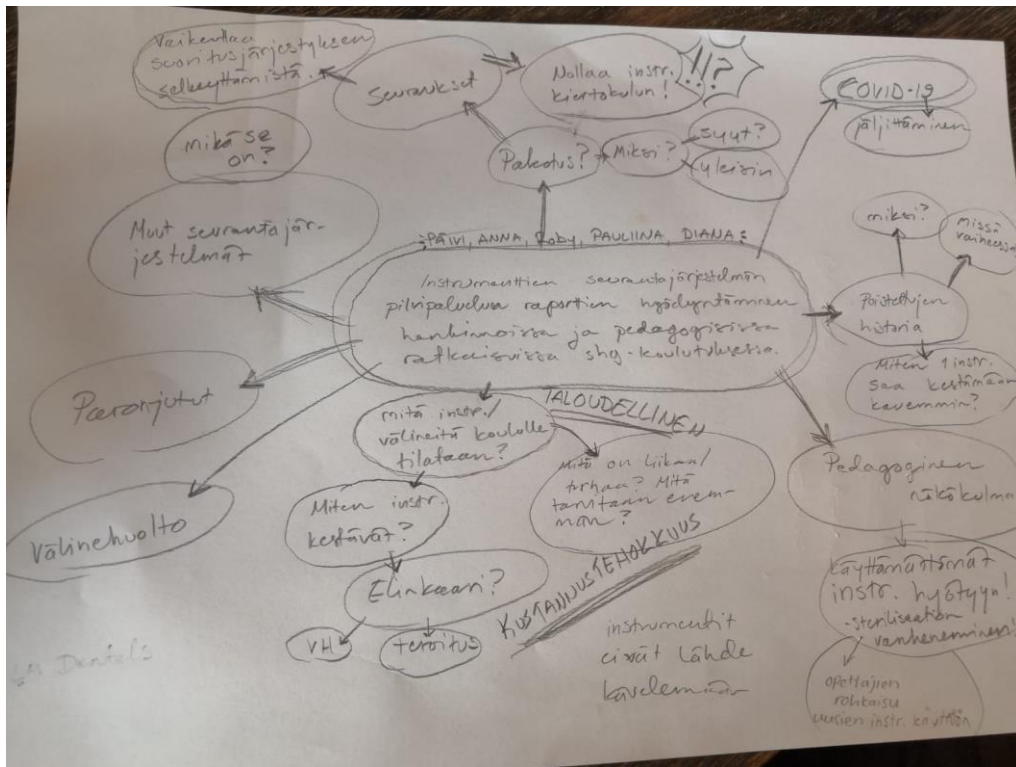 Vaikeuttaa
suoritusjärjestyksen
selkeyttämistä.
Seuraukset
Nollaa instr.
kiertokulun!
!!?
COVID-19
jäljittäminen
mikä se
on?
Pakotus?
Miksi?
syyt?
yleisin
Muut seurantajär-
jestelmät
:PÄIVI, ANNA, Roby, PAULIINA, DIANA:
Instrumenttien seurantajärjestelmän
pilvipalvelun raporttien hyödyntäminen
hankinnoissa ja pedagogisissa
ratkaisuissa shg-koulutuksessa.
miksi?
missä
vaiheessa
Poistettujen
historia
Miten 1 instr.
saa kestämään
kauemmin?
Paronjutut
mitä instr./
välineitä koululle
tilataan?
TALOUDELLINEN
Mitä on liikaa/
turhaa? Mitä
tarvitaan enem-
män?
Pedagoginen
näkökulma
Välinehuolto
Miten instr.
kestävät?
Elinkaari?
VH
teroitus
KUSTANNUSTEHOKKUUS
käyttämättömät
instr. hyötyyn!
-sterilisaation
vanheneminen!
instrumentit
eivät lähde
kävelemään
opettajien
rohkaisu
uusien instr. käyttöön